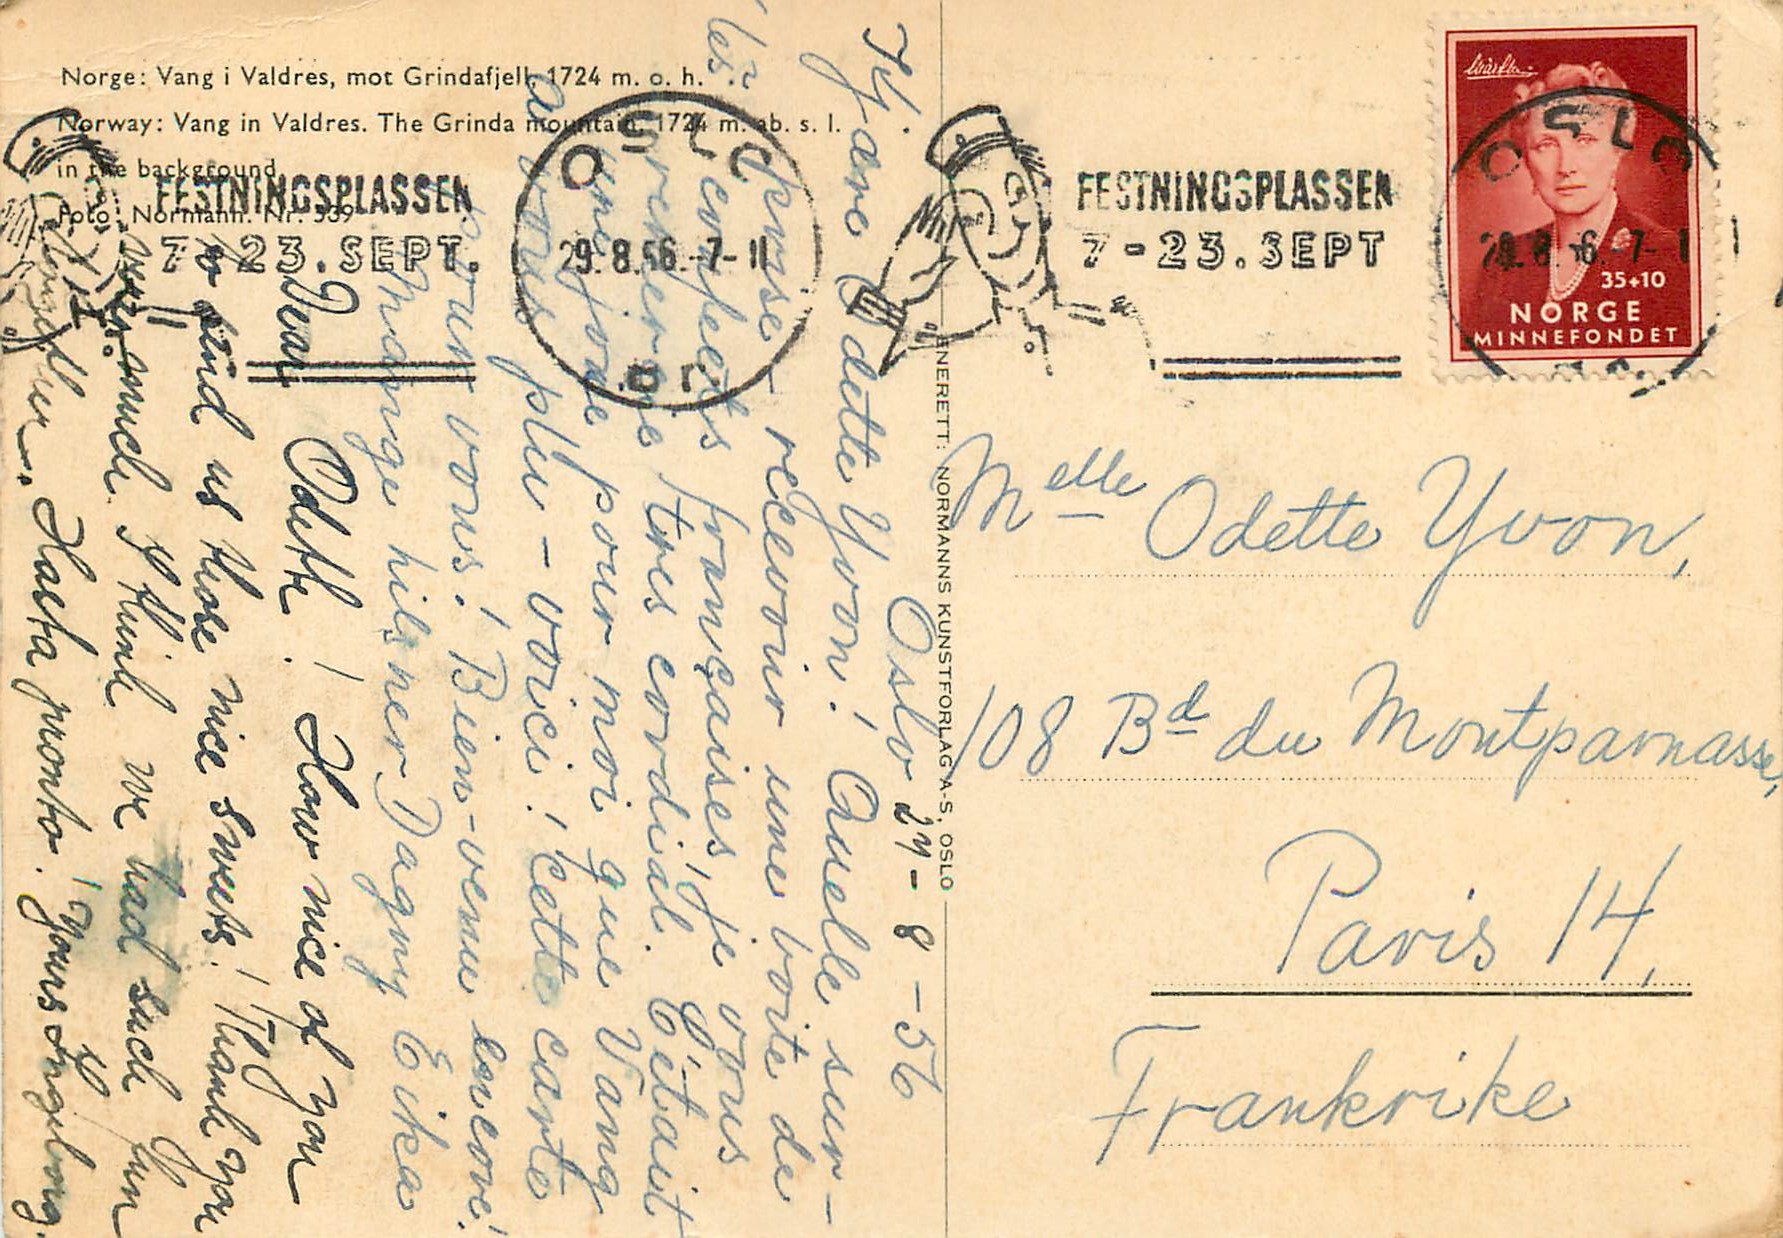 Norge: Vang i Valdres, mot Grindafjell, 1724 m. o. h.
Norway: Vang in Valdres. The Grinda mountain, 1724 m. ab. s. l.
in the background.
Foto: Normann. Nr. 539
FESTNINGSPLASSEN
7-23. SEPT.
OSLO
29.8.56.-7-11
BR.
FESTNINGSPLASSEN
7-23. SEPT
OSLO
29.8.56.-7-1
35+10
NORGE
MINNEFONDET
ENERETT: NORMANNS KUNSTFORLAG A-S, OSLO
Oslo 24-8-56
Kjære Odette Yvon! Quelle sur-
prise - recevoir une boite de
confeets françaises, je vous
remercie tres cordial. C'était
une joie pour moi que Vang
a vous plu - voici! Cette carte
pour vous! Bien-venu encore!
Mange hilsner Dagny Eika
Dear Odette! How nice of you
to send us those nice sweets! Thank you
very much. I think we had such fun
Hasta pronto. Yours Ingebjørg.
Melle Odette Yvon,
108 Bd du Montparnasse,
Paris 14,
Frankrike